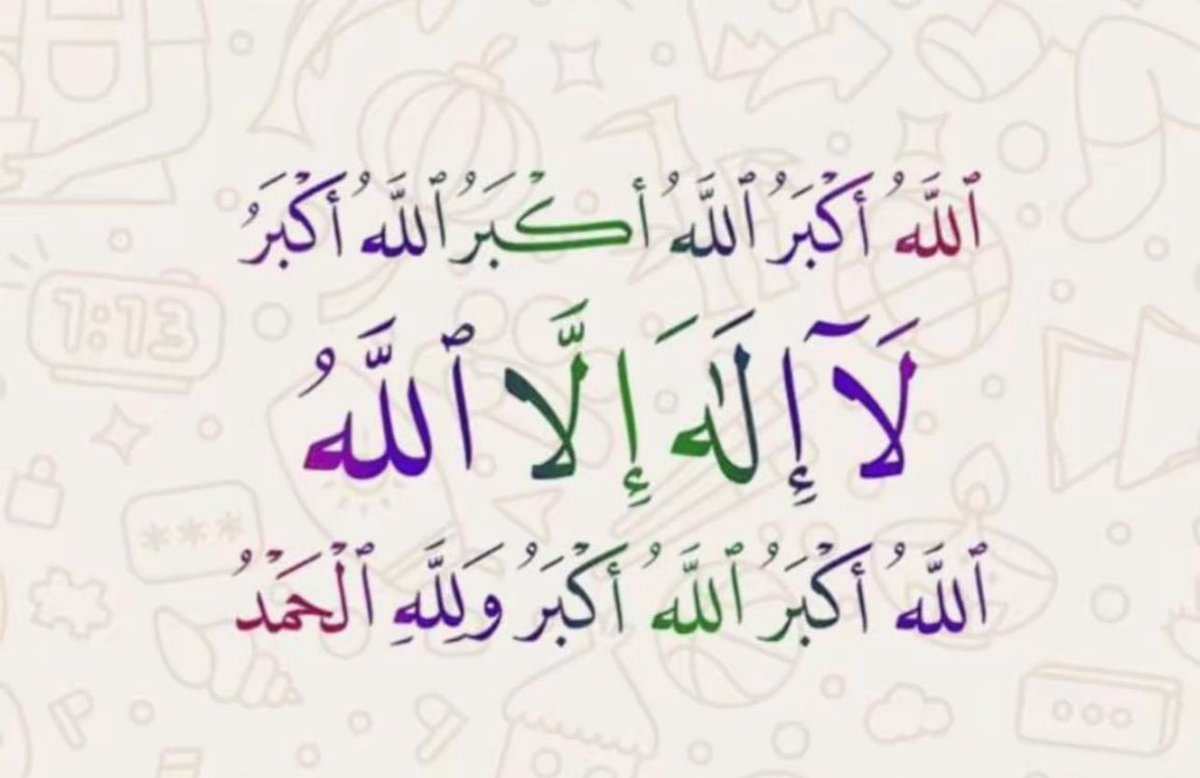 ٱللَّهُ أَكْبَرُ ٱللَّهُ أَكْبَرُ ٱللَّهُ أَكْبَرُ
لَآ إِلَٰهَ إِلَّا ٱللَّهُ
ٱللَّهُ أَكْبَرُ ٱللَّهُ أَكْبَرُ وَلِلَّهِ ٱلْحَمْدُ
1:13
***